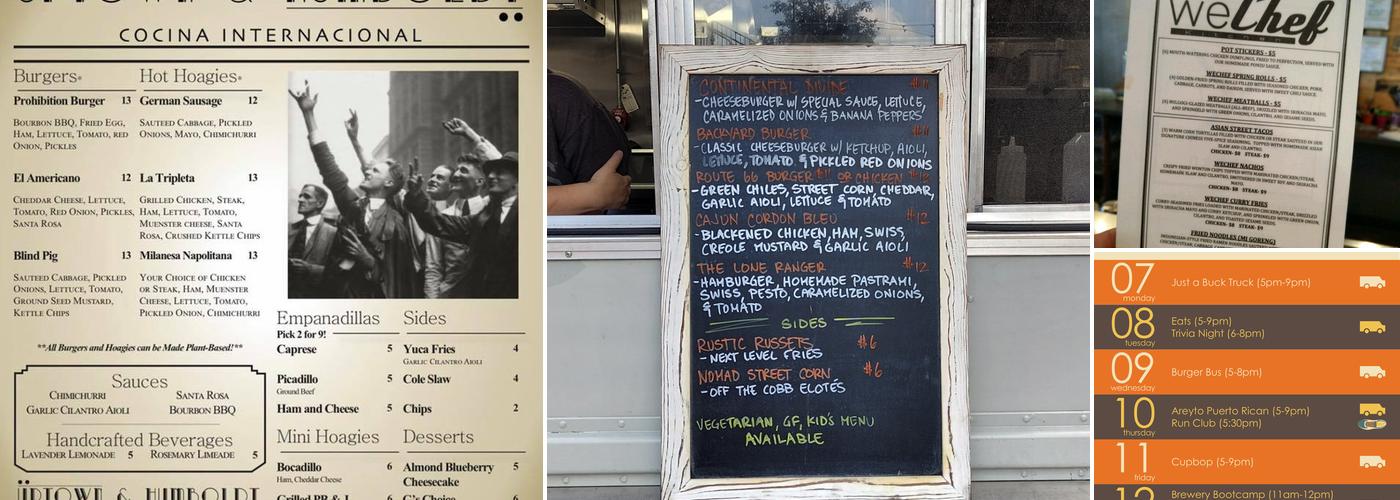 UPTOWN & HUMBOLDT
COCINA INTERNACIONAL
Burgers
Prohibition Burger 13
BOURBON BBQ, FRIED EGG,
HAM, LETTUCE, TOMATO, RED
ONION, PICKLES
El Americano 12
CHEDDAR CHEESE, LETTUCE,
TOMATO, RED ONION, PICKLES,
SANTA ROSA
Blind Pig 13
SAUTEED CABBAGE, PICKLED
ONIONS, LETTUCE, TOMATO,
GROUND SEED MUSTARD,
KETTLE CHIPS
Hot Hoagies
German Sausage 12
SAUTEED CABBAGE, PICKLED
ONIONS, MAYO, CHIMICHURRI
La Tripleta 13
GRILLED CHICKEN, STEAK,
HAM, LETTUCE, TOMATO,
MUENSTER CHEESE, SANTA
ROSA, CRUSHED KETTLE CHIPS
Milanesa Napolitana 13
YOUR CHOICE OF CHICKEN
OR STEAK, HAM, MUENSTER
CHEESE, LETTUCE, TOMATO,
PICKLED ONION, CHIMICHURRI
**All Burgers and Hoagies can be Made Plant-Based!**
Sauces
CHIMICHURRI SANTA ROSA
GARLIC CILANTRO AIOLI BOURBON BBQ
Handcrafted Beverages
LAVENDER LEMONADE 5 ROSEMARY LIMEADE 5
UPTOWN & HUMBOLDT
Empanadillas
Pick 2 for 9!
Caprese 5
Picadillo 5
Ground Beef
Ham and Cheese 5
Mini Hoagies
Bocadillo 6
Ham, Cheddar Cheese
Grilled PB & J 6
Sides
Yuca Fries 4
GARLIC CILANTRO AIOLI
Cole Slaw 4
Chips 2
Desserts
Almond Blueberry 5
Cheesecake
G's Choice
CONTINENTAL DIVIDE $11
-CHEESEBURGER W/ SPECIAL SAUCE, LETTUCE,
CARAMELIZED ONIONS & BANANA PEPPERS
BACKYARD BURGER $11
-CLASSIC CHEESEBURGER W/ KETCHUP, AIOLI,
LETTUCE, TOMATO & PICKLED RED ONIONS
ROUTE 66 BURGER $11 OR CHICKEN $12
-GREEN CHILES, STREET CORN, CHEDDAR,
GARLIC AIOLI, LETTUCE & TOMATO
CAJUN CORDON BLEU $12
-BLACKENED CHICKEN, HAM, SWISS,
CREOLE MUSTARD & GARLIC AIOLI
THE LONE RANGER $12
-HAMBURGER, HOMEMADE PASTRAMI,
SWISS, PESTO, CARAMELIZED ONIONS,
& TOMATO
SIDES
RUSTIC RUSSETS $6
-NEXT LEVEL FRIES
NOMAD STREET CORN $6
-OFF THE COBB ELOTÉS
VEGETARIAN, GF, KID'S MENU
AVAILABLE
weChef
POT STICKERS - $5
(5) MOUTH-WATERING CHICKEN DUMPLINGS, FRIED TO PERFECTION, SERVED WITH
OUR HOMEMADE PONZU SAUCE.
WECHEF SPRING ROLLS - $5
WECHEF MEATBALLS - $5
ASIAN STREET TACOS
CHICKEN- $8 STEAK- $9
WECHEF NACHOS
CHICKEN- $8 STEAK- $9
WECHEF CURRY FRIES
CHICKEN- $8 STEAK- $9
FRIED NOODLES (MI GORENG)
07
monday
Just a Buck Truck (5pm-9pm)
08
tuesday
Eats (5-9pm)
Trivia Night (6-8pm)
09
wednesday
Burger Bus (5-8pm)
10
thursday
Areyto Puerto Rican (5-9pm)
Run Club (5:30pm)
11
friday
Cupbop (5-9pm)
12
Brewery Bootcamp (11am-12pm)